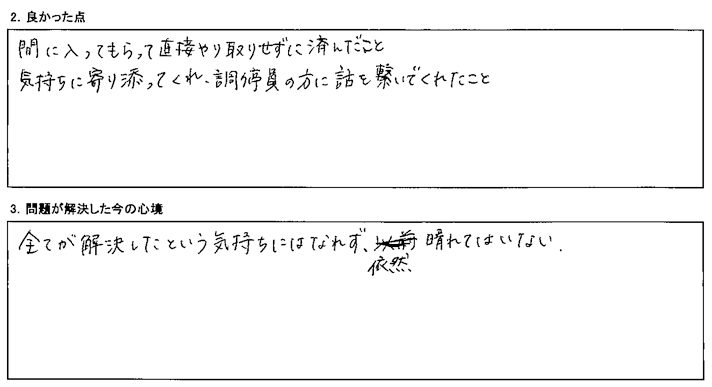 2. 良かった点
間に入ってもらって直接やり取りせずに済んだこと
気持ちに寄り添ってくれ、調停員の方に話を繋いでくれたこと
3. 問題が解決した今の心境
全てが解決したという気持ちにはなれず、以前 晴れてはいない.
依然